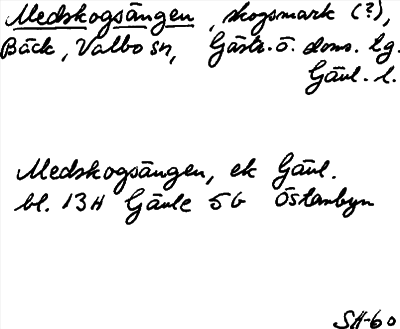 Medskogsängen, skogsmark (?),
Bäck, Valbo sn, Gästr. ö. doms. tg.
Gävl. l.
Medskogsängen, ek Gävl.
bl. 13H Gävle 5G Östanbyn
SH-60